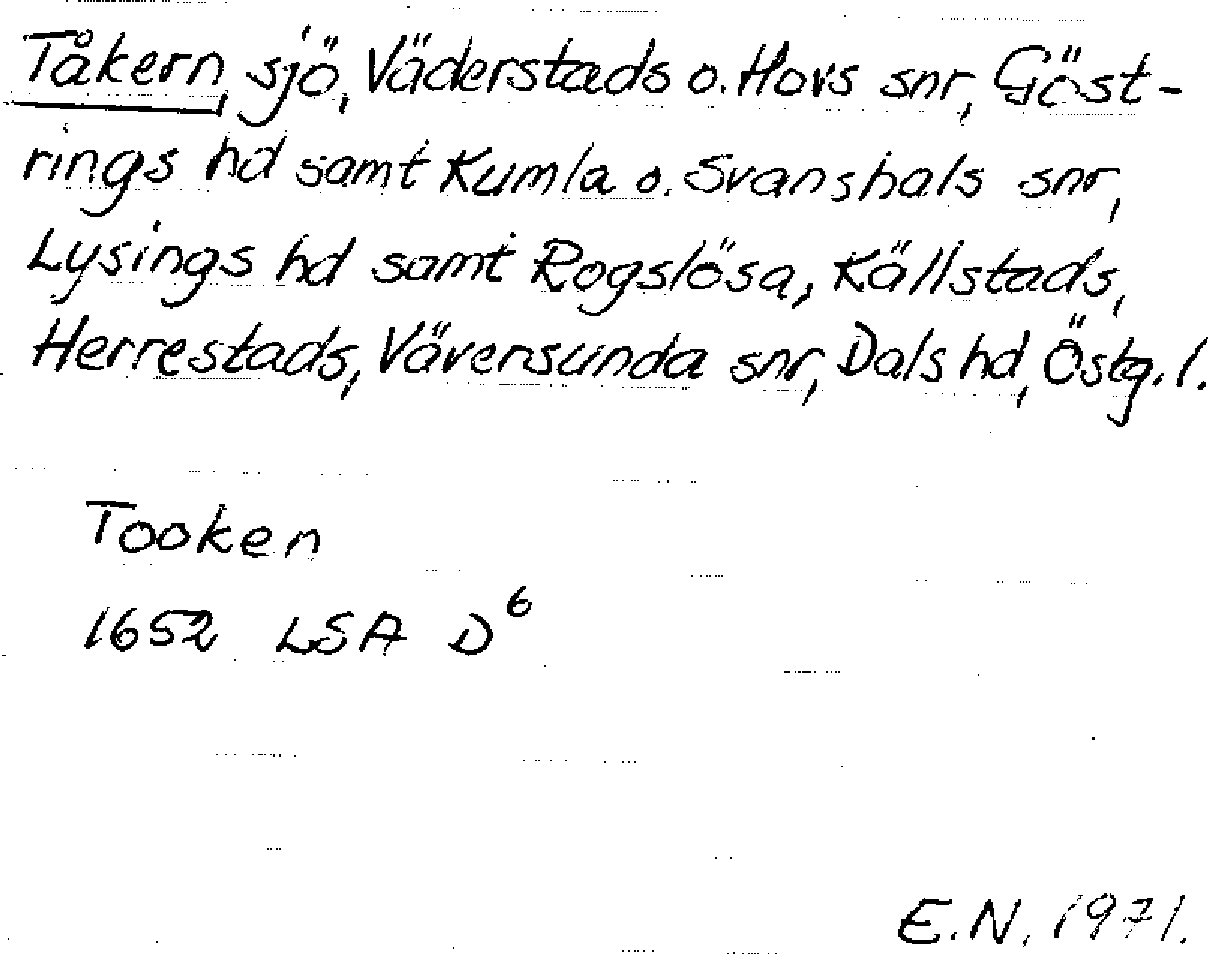 Tåkern, sjö, Väderstads o. Hovs snr, Göst-
rings hd samt Kumla o. Svanshals snr,
Lysings hd samt Rogslösa, Källstads,
Herrestads, Väversunda snr, Dals hd, Östg. l.
Tooken
1652 LSA D⁶
E.N. 1971.